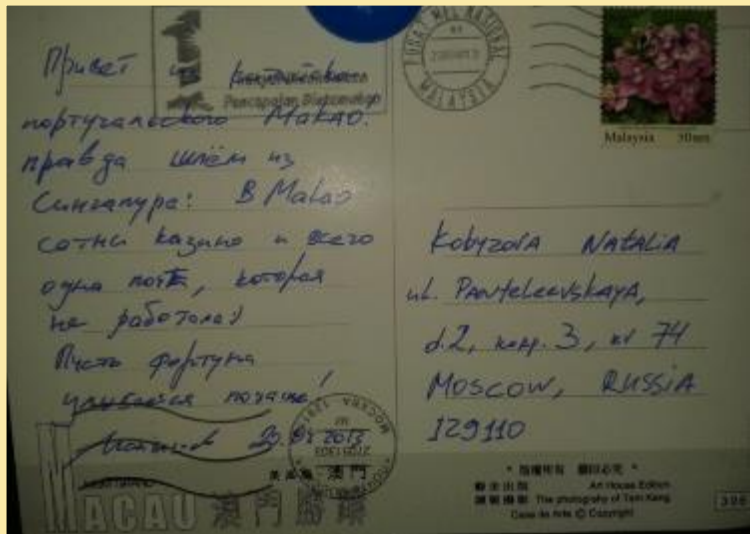 Привет из
португальского Макао.
правда шлём из
Сингапура: В Макао
сотни казино и всего
одна почта, которая
не работала)
Пусть фортуна
улыбается почаще!
2013
PUSAT MEL NASIONAL
MALAYSIA
Malaysia 50sen
Kobyzova Natalia
ul. Panteleevskaya,
d.2, кор. 3, кв 74
Moscow, Russia
129110
МОСКВА
澳門
MACAU 澳門
* 版權所有 翻印必究 *
Art House Edition
The photography of Tam Keng
Casa de Arte © Copyright
396